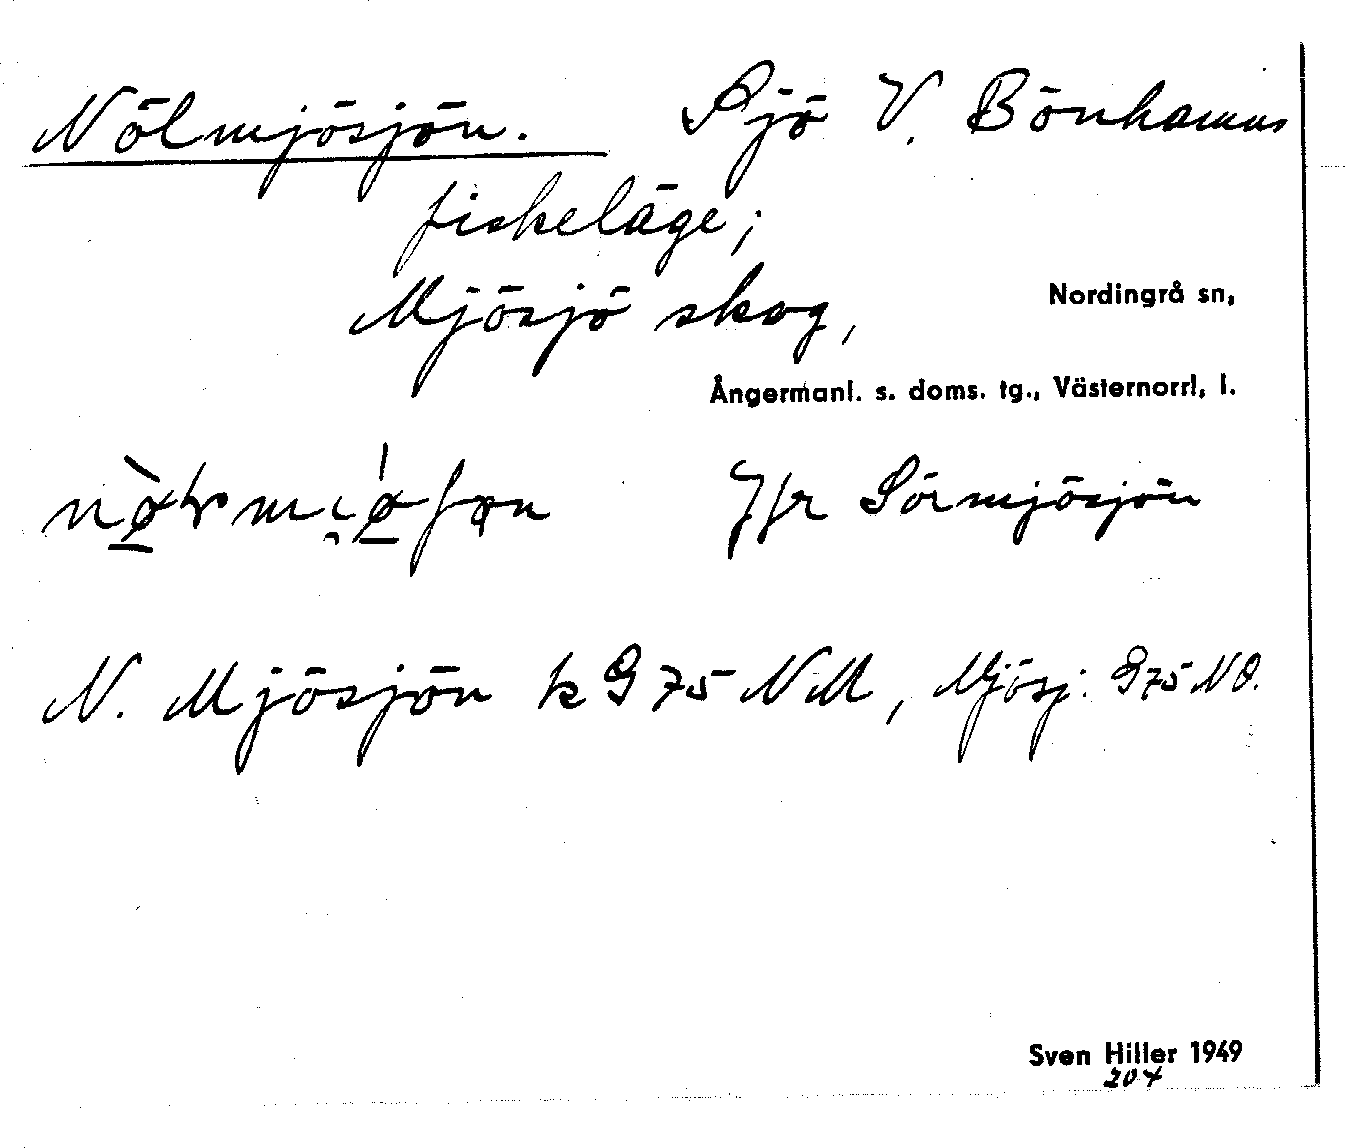 Nölmjösjön. Sjö V. Bönhamns
fiskeläge;
Mjösjö skog,
Nordingrå sn,
Ångermanl. s. doms. tg., Västernorrl. l.
Jfr Sörmjösjön
N. Mjösjön k G 75 NM, Mjösj. G 75 NO.
Sven Hiller 1949
204